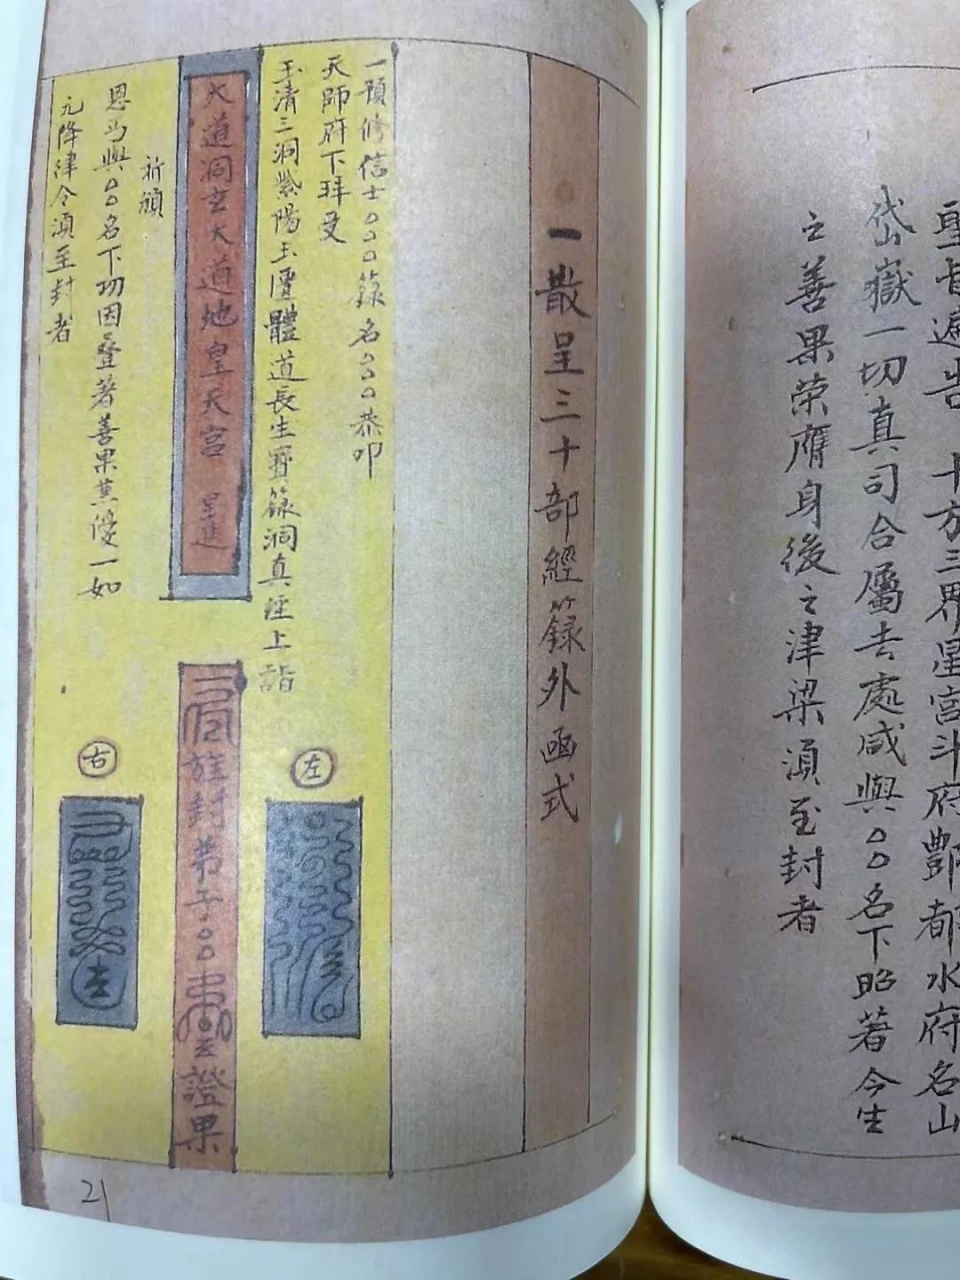 聖旨遍告十方三界星宮斗府酆都水府名山
岱嶽一切真司合屬去處咸與○○名下昭著今生
之善果榮膺身後之津梁須至封者
一散呈三十部經籙外函式
一預修信士○○○籙名○○○恭叩
天師府下拜受
玉清三洞紫陽玉匱體道長生寶籙洞真經上詣
大道洞玄大道地皇天宮 呈進
祈頒
恩丐與○○名下功因疊著善果萬優一如
元降津令須至封者
左
右
旌封弟子○○
證果
21